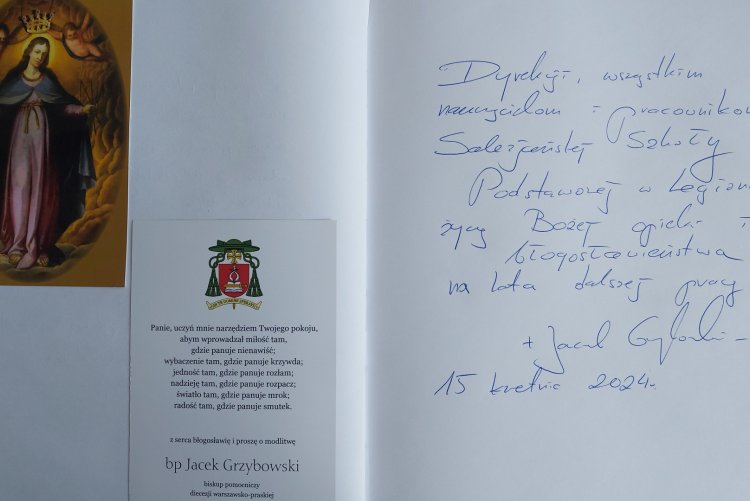 Panie, uczyń mnie narzędziem Twojego pokoju,
abym wprowadzał miłość tam,
gdzie panuje nienawiść;
wybaczenie tam, gdzie panuje krzywda;
jedność tam, gdzie panuje rozłam;
nadzieję tam, gdzie panuje rozpacz;
światło tam, gdzie panuje mrok;
radość tam, gdzie panuje smutek.
z serca błogosławię i proszę o modlitwę
bp Jacek Grzybowski
biskup pomocniczy
diecezji warszawsko-praskiej
Dyrekcji, wszystkim
nauczycielom i Pracowniko
Salezjańskiej Szkoły
Podstawowej w Legiono
życzę Bożej opieki i
błogosławieństwa
na lata dalszej pracy
+ Jacek Grzybowski
15 kwietnia 2024r.